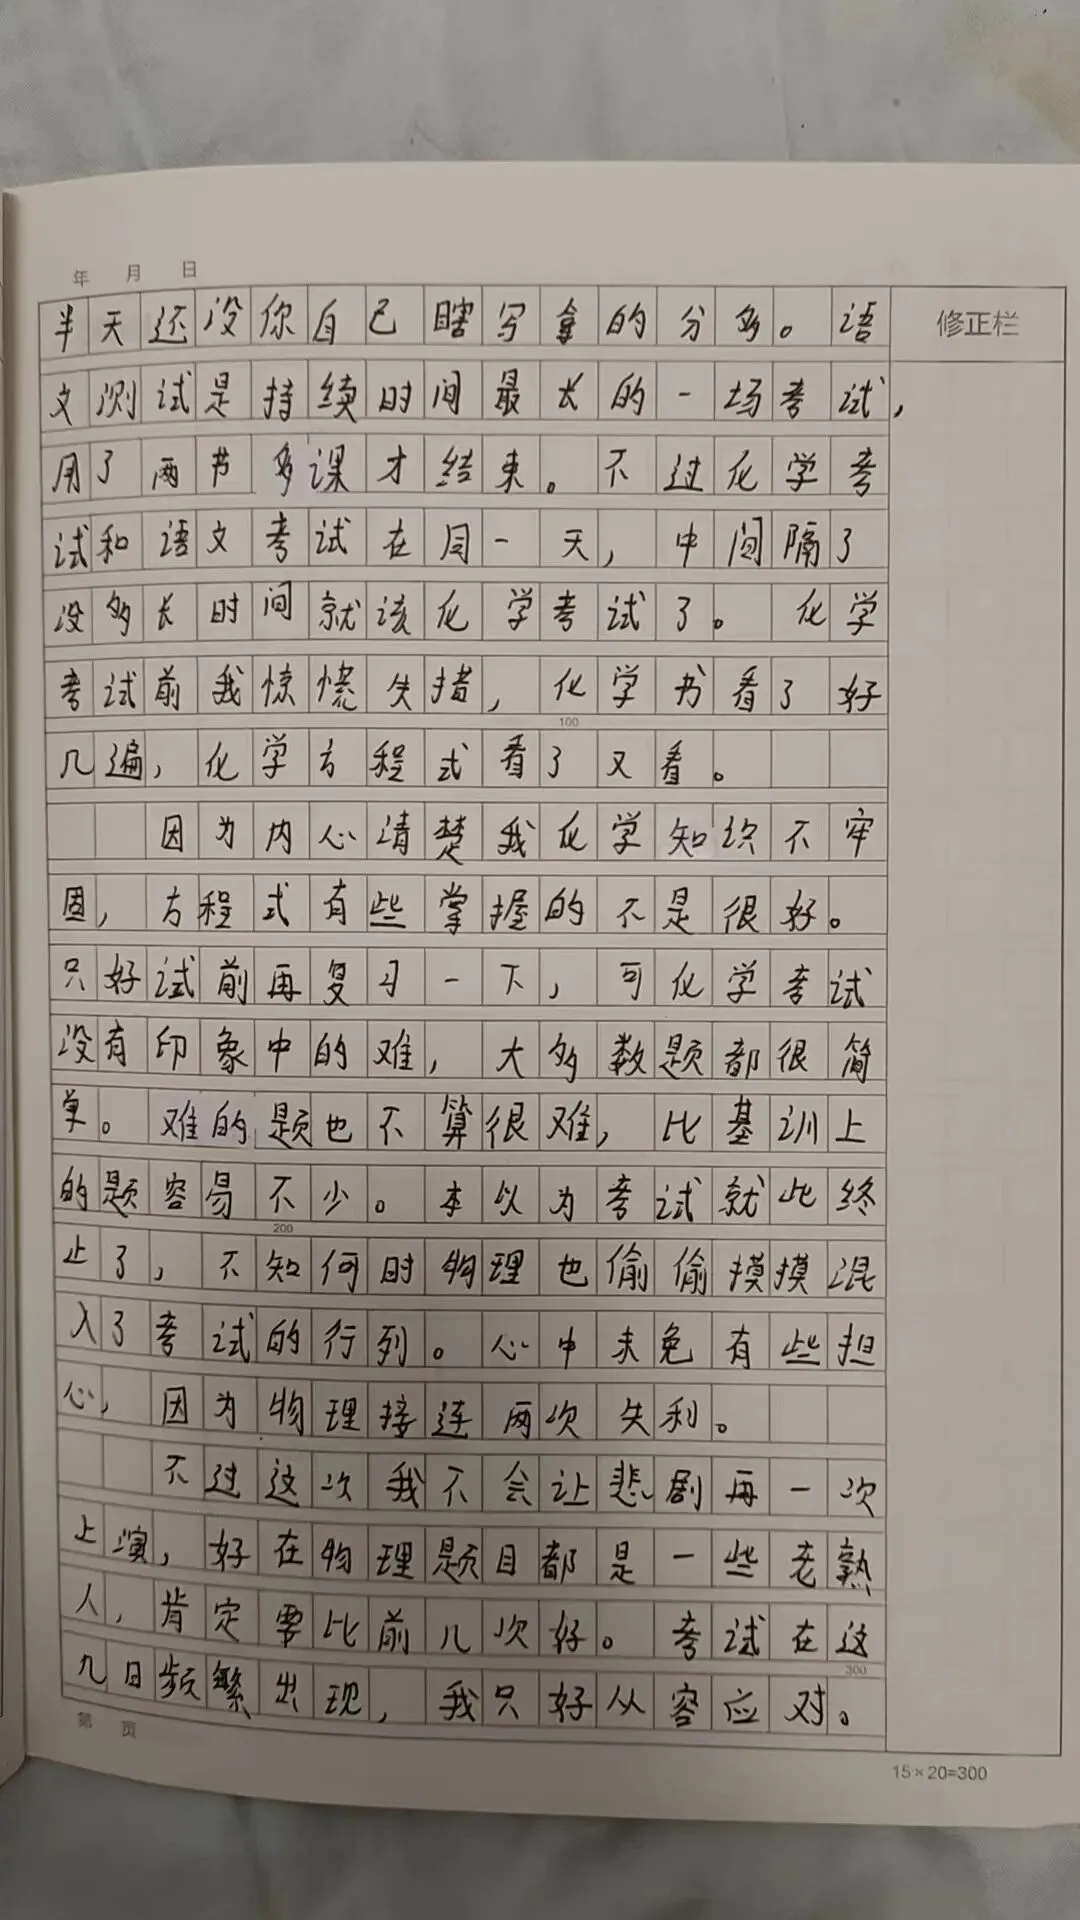 年 月 日
半天还没你自己瞎写拿的分多。语
修正栏
文测试是持续时间最长的一场考试,
用了两节多课才结束。不过化学考
试和语文考试在同一天,中间隔了
没多长时间就该化学考试了。化学
考试前我惊慌失措,化学书看了好
100
几遍,化学方程式看了又看。
因为内心清楚我化学知识不牢
固,方程式有些掌握的不是很好。
只好试前再复习一下,可化学考试
没有印象中的难,大多数题都很简
单。难的题也不算很难,比基训上
的题容易不少。本以为考试就此终
200
止了,不知何时物理也偷偷摸摸混
入了考试的行列。心中未免有些担
心,因为物理接连两次失利。
不过这次我不会让悲剧再一次
上演,好在物理题目都是一些老熟
人,肯定要比前几次好。考试在这
300
几日频繁出现,我只好从容应对。
第 页
15×20=300